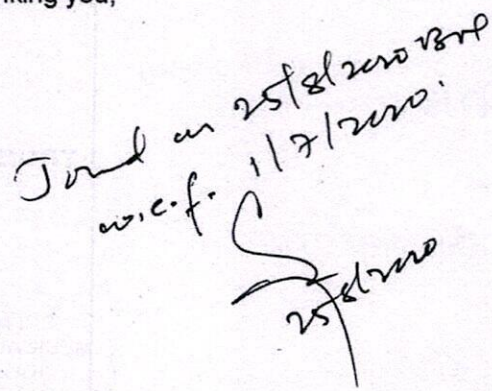 nking you,
Joined on 25/8/2020
w.e.f. 1/7/2020.
25/8/2020